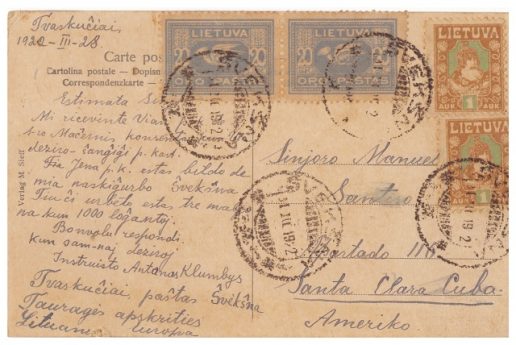 Tvaskučiai
1922-III-28
Carte postale
Cartolina postale — Dopisn
Correspondenzkarte
Estimata
Mi ricevinte
Mačernis
deziro p. kart.
Jena p. k. estas bildo de
mia naskiĝurbo Švėkšna
urbeto estas tre mal
na kun 1000 loĝantoj.
Bonvolu respondi
kun sam-naj deziroj
Instruisto Antanas Klumbys
Tvaskučiai paštas Švėkšna
Tauragės apskrities
Lituanu Europa
Verlag M. Sleff
LIETUVA
20 20
ORO PAŠTAS
LIETUVA
20 20
ORO PAŠTAS
LIETUVA
1
AUK AUK
LIETUVA
1
Sinjoro Manuel
Santro
Apartado 110
Santa Clara Cuba.
Ameriko